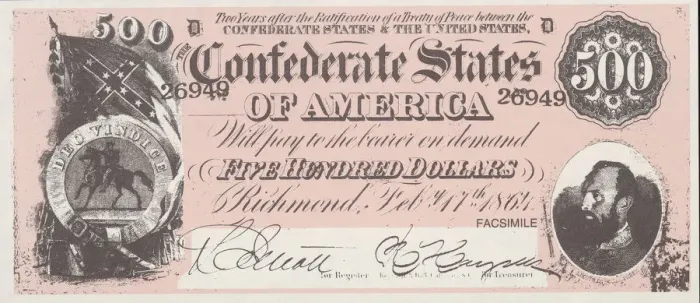 Two Years after the Ratification of a Treaty of Peace between the
CONFEDERATE STATES & THE UNITED STATES,
500 D D
THE Confederate States 500
26949 No 26949
OF AMERICA
DEO VINDICE
Will pay to the bearer on demand
FIVE HUNDRED DOLLARS
Richmond, Feby. 17th 1864
FACSIMILE
for Register for Treasurer